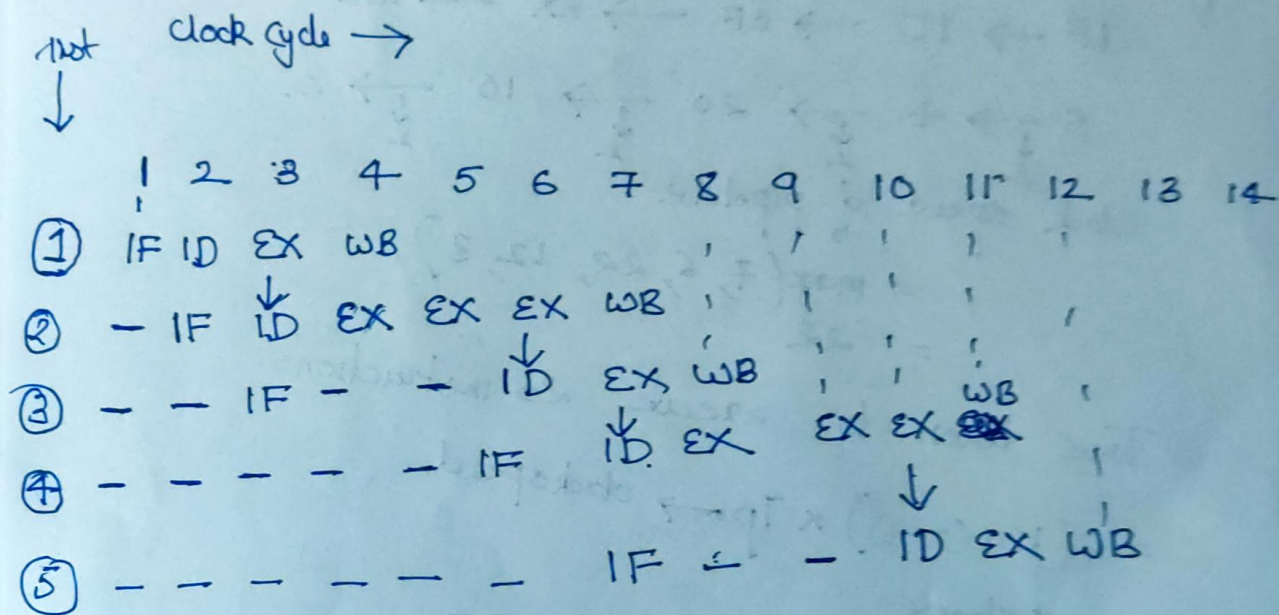 Inst Clock Cycle →
↓
1 2 3 4 5 6 7 8 9 10 11 12 13 14
① IF ID EX WB
↓
② - IF ID EX EX EX WB
↓
③ - - IF - - ID EX WB
↓
④ - - - - - IF ID. EX EX EX WB
↓
⑤ - - - - - - IF - - ID EX WB